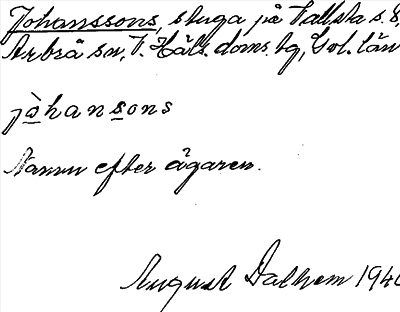 Johanssons, stuga på Vallsta s. 8,
Arbrå sn, V. Häls. doms. bg, Gvl. län
jòhansons
Namn efter ägaren.
August Dalhem 1940